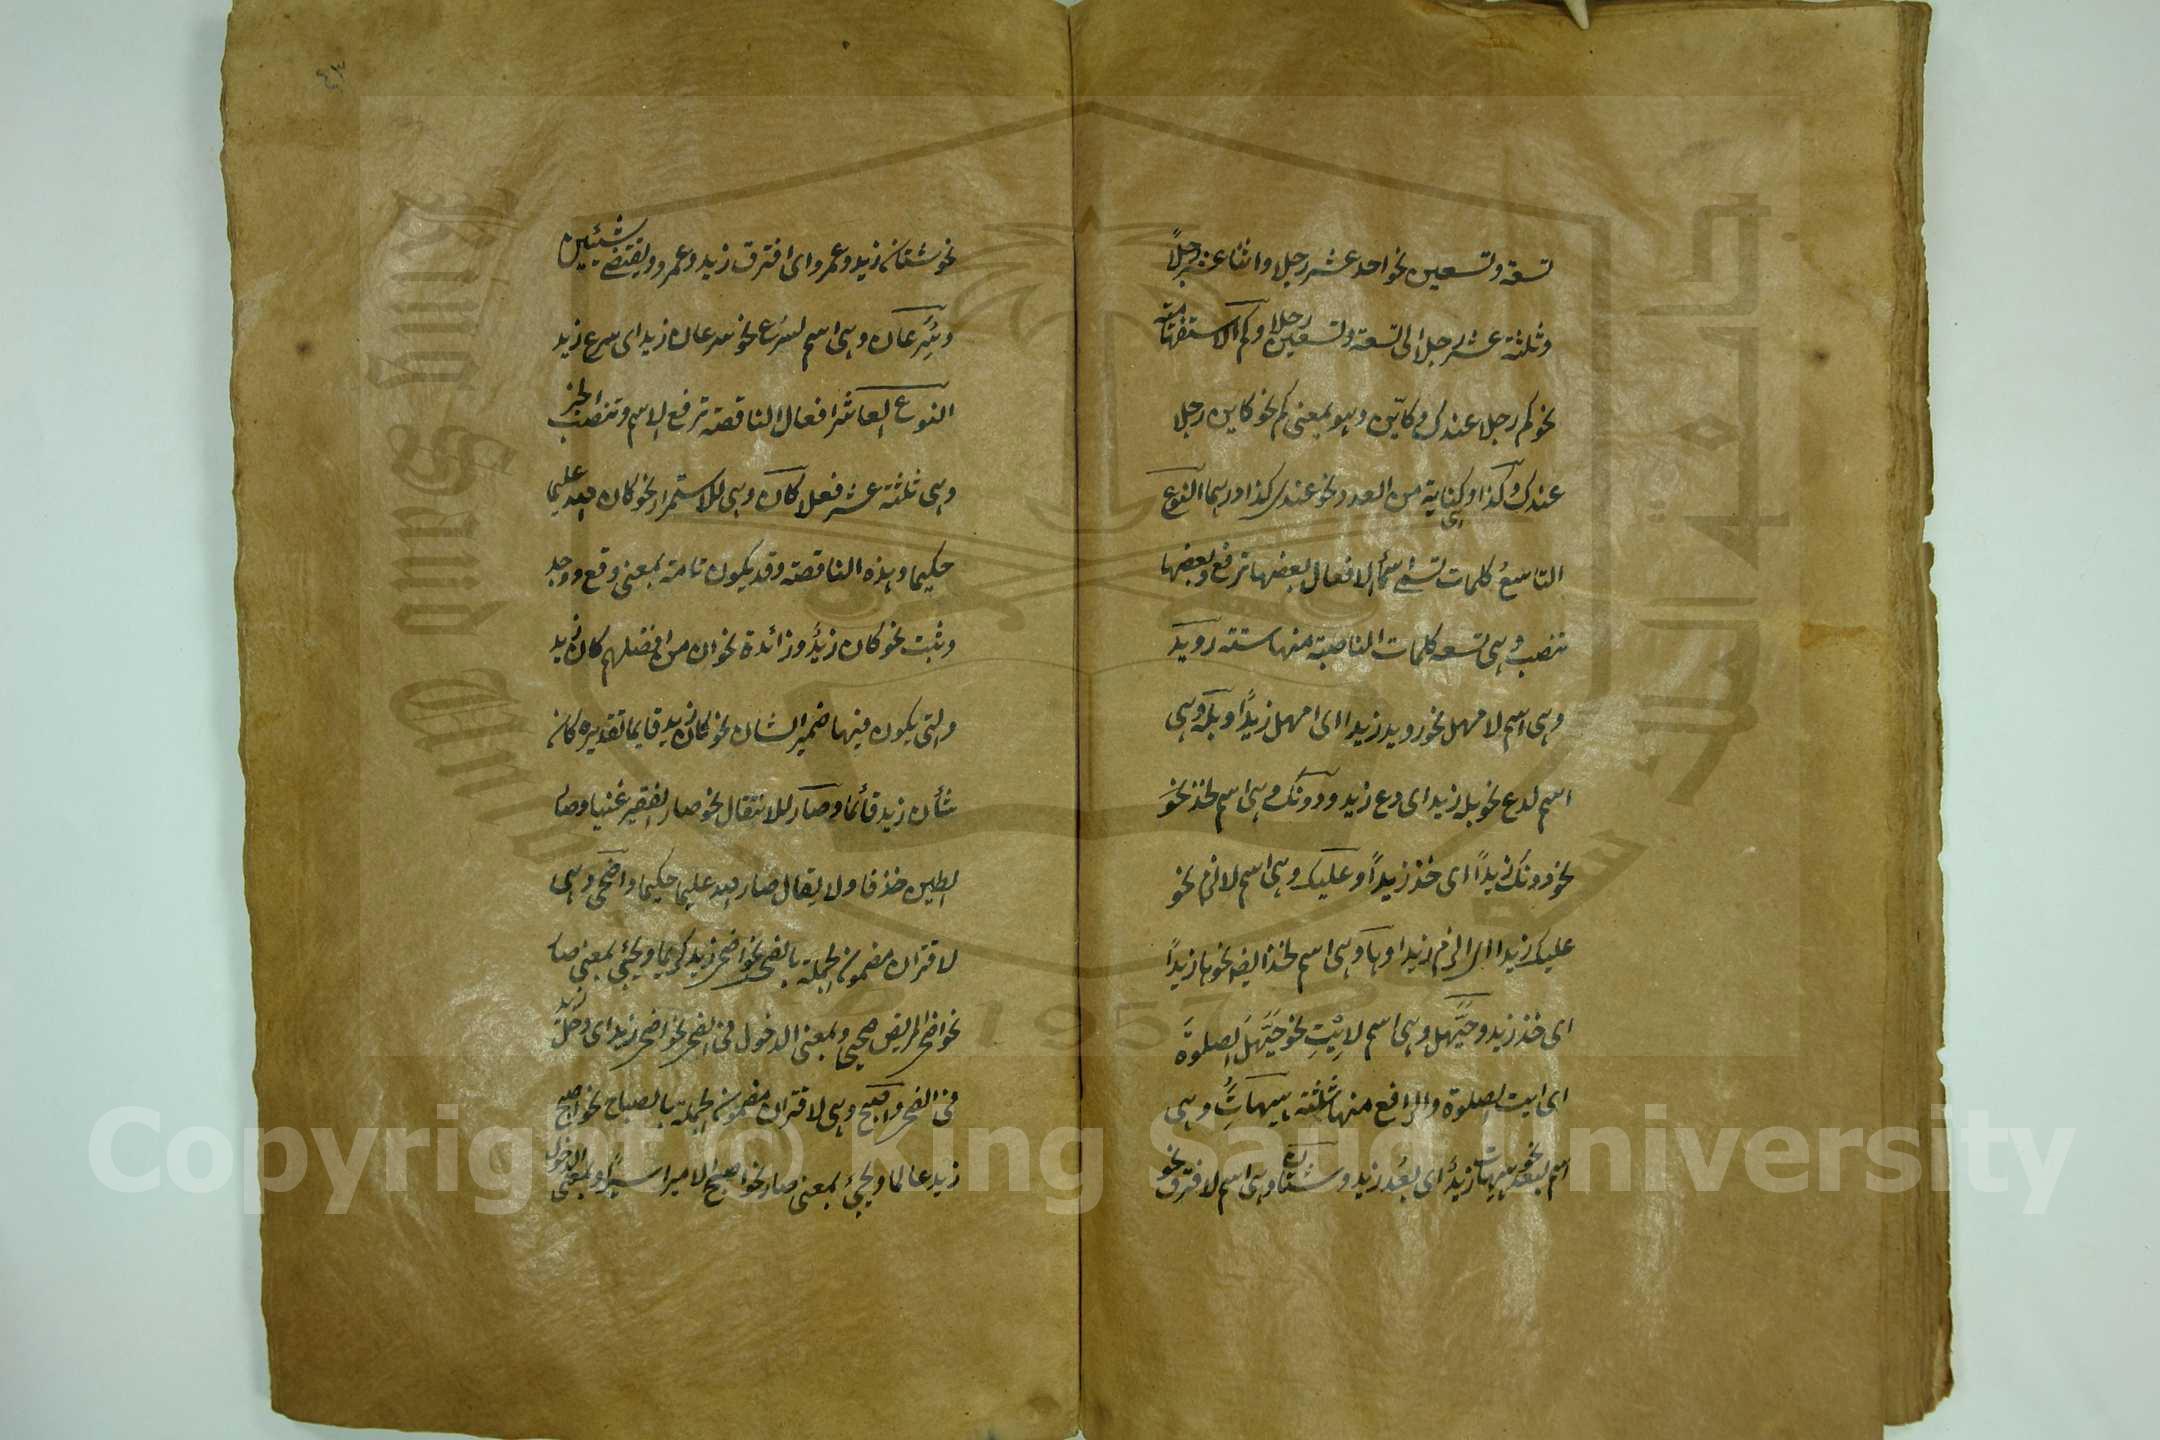 تسعة وتسعين نحو احد عشر رجلا واثنا عشر رجلاً
وثلثة عشر رجلا الى تسعة وتسعين رجلا وكم الاستفهامية
نحو كم رجلا عندك وكايّن وهو بمعنى كم نحو كاين رجلا
عندك وكذا وكناية من العدد نحو عندى كذا درهما النوع
التاسع كلمات تسمى اسماء الافعال بعضها ترفع وبعضها
تنصب وهى تسعه كلمات الناصبة منها ستته رويد
وهى اسم لا مهل نحو رويد زيدا اى امهل زيداً وبله وهى
اسم لدع نحو بله زيدا اى دع زيد ودونك وهى اسم لخذ نحو
نحو دونك زيداً اى خذ زيداً وعليك وهى اسم لالزم نحو
عليك زيدا اى الزم زيدا وها وهى اسم لخذ ايضه نحو ها زيداً
اى خذ زيد وحيّهل وهى اسم لايت نحو حيّهل الصلوة
اى ايت الصلوة والرافع منها ثلثة هيهات وهى
اسم لبعد نحو هيهات زيدٌ اى بعد زيد وشتان وهى اسم لافترق نحو
نحو شتان زيد وعمرو اى افترق زيد وعمرو ويقتضے شيئين
وسرعان وهى اسم لسرع نحو سرعان زيد اى سرع زيد
النوع العاشر افعال الناقصة ترفع الاسم وتنصب الخبر
وهى ثلثة عشر فعلا كان وهى للاستمرار نحو كان الله عليما
حكيما وهذه الناقصة وقد يكون تامة بمعنى وقع ووجد
وثبت نحو كان زيدٌ وزائدة نحو ان من افضلهم كان زيد
والتى يكون فيها ضمير الشان نحو كان زيد قايما تقديره كان
شأن زيد قائما وصار للانتقال نحو صار الفقير غنيا وصار
الطين خذفا ولا يقال صار الله عليما حكيما واضحى وهى
لاقتران مضمون الجملة بالضحى نحو اضحى زيد كريما ويجئ بمعنى صار
نحو اضحى المريض صحيحا وبمعنى الدخول فى الضحى نحو اضحى زيد اى دخل زيد
فى الضحى واصبح وهى لاقتران مضمون الجملة بالصباح نحو اصبح
زيد عالما ويجئ بمعنى صار نحو اصبح الامير اسيرا وبمعنى الدخول
Copyright © King Saud University
King Saud University
جامعة الملك سعود
1957